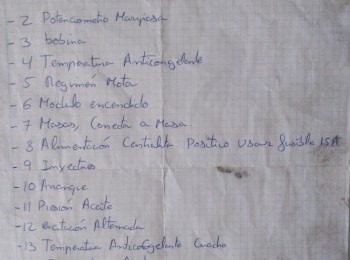 - 2 Potenciometro Mariposa
- 3 bobina
- 4 Temperatura Anticongelante
- 5 Regimén Mota
- 6 Modulo encendido
- 7 Masas, Conecta a Masa.
- 8 Alimentación Centralita Positivo usar fusible 15A
- 9 Inyectores
- 10 Arranque
- 11 Presión Aceite
- 12 Alternador
- 13 Temperatura Anticogelante Cuadro